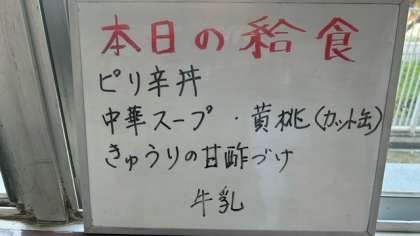 本日の給食
ピリ辛丼
中華スープ ・黄桃(カット缶)
きゅうりの甘酢づけ
牛乳